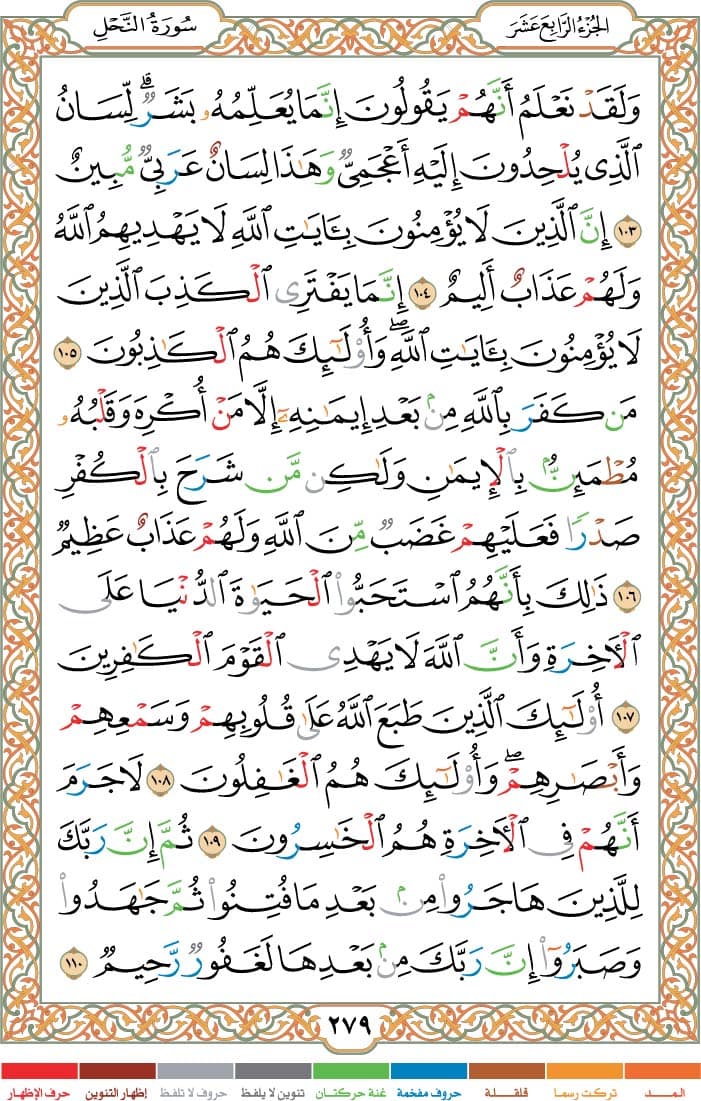 الجُزْءُ الرَّابِعَ عَشَرَ
سُورَةُ النَّحْلِ
وَلَقَدْ نَعْلَمُ أَنَّهُمْ يَقُولُونَ إِنَّمَا يُعَلِّمُهُۥ بَشَرٌ ۗ لِّسَانُ
ٱلَّذِى يُلْحِدُونَ إِلَيْهِ أَعْجَمِىٌّ وَهَٰذَا لِسَانٌ عَرَبِىٌّ مُّبِينٌ
١٠٣ إِنَّ ٱلَّذِينَ لَا يُؤْمِنُونَ بِـَٔايَٰتِ ٱللَّهِ لَا يَهْدِيهِمُ ٱللَّهُ
وَلَهُمْ عَذَابٌ أَلِيمٌ ١٠٤ إِنَّمَا يَفْتَرِى ٱلْكَذِبَ ٱلَّذِينَ
لَا يُؤْمِنُونَ بِـَٔايَٰتِ ٱللَّهِ ۖ وَأُو۟لَٰٓئِكَ هُمُ ٱلْكَٰذِبُونَ ١٠٥
مَن كَفَرَ بِٱللَّهِ مِنۢ بَعْدِ إِيمَٰنِهِۦٓ إِلَّا مَنْ أُكْرِهَ وَقَلْبُهُۥ
مُطْمَئِنٌّۢ بِٱلْإِيمَٰنِ وَلَٰكِن مَّن شَرَحَ بِٱلْكُفْرِ
صَدْرًا فَعَلَيْهِمْ غَضَبٌ مِّنَ ٱللَّهِ وَلَهُمْ عَذَابٌ عَظِيمٌ
١٠٦ ذَٰلِكَ بِأَنَّهُمُ ٱسْتَحَبُّوا۟ ٱلْحَيَوٰةَ ٱلدُّنْيَا عَلَى
ٱلْـَٔاخِرَةِ وَأَنَّ ٱللَّهَ لَا يَهْدِى ٱلْقَوْمَ ٱلْكَٰفِرِينَ
١٠٧ أُو۟لَٰٓئِكَ ٱلَّذِينَ طَبَعَ ٱللَّهُ عَلَىٰ قُلُوبِهِمْ وَسَمْعِهِمْ
وَأَبْصَٰرِهِمْ ۖ وَأُو۟لَٰٓئِكَ هُمُ ٱلْغَٰفِلُونَ ١٠٨ لَا جَرَمَ
أَنَّهُمْ فِى ٱلْـَٔاخِرَةِ هُمُ ٱلْخَٰسِرُونَ ١٠٩ ثُمَّ إِنَّ رَبَّكَ
لِلَّذِينَ هَاجَرُوا۟ مِنۢ بَعْدِ مَا فُتِنُوا۟ ثُمَّ جَٰهَدُوا۟
وَصَبَرُوٓا۟ إِنَّ رَبَّكَ مِنۢ بَعْدِهَا لَغَفُورٌ رَّحِيمٌ ١١٠
٢٧٩
المـــد تركت رسما قلقـلة حروف مفخمة غنة حركتـان تنوين لا يلفظ حروف لا تلفظ إظهار التنوين حرف الإظهار